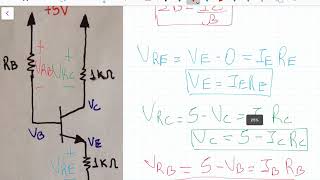 +5V
RB
VRB
VRC
1KΩ
VC
VB
VE
VRE
1KΩ
IB = IC
β
VRE = VE - 0 = IE RE
VE = IE RE
VRC = 5 - VC = IC RC
VC = 5 - IC RC
VRB = 5 - VB = IB RB